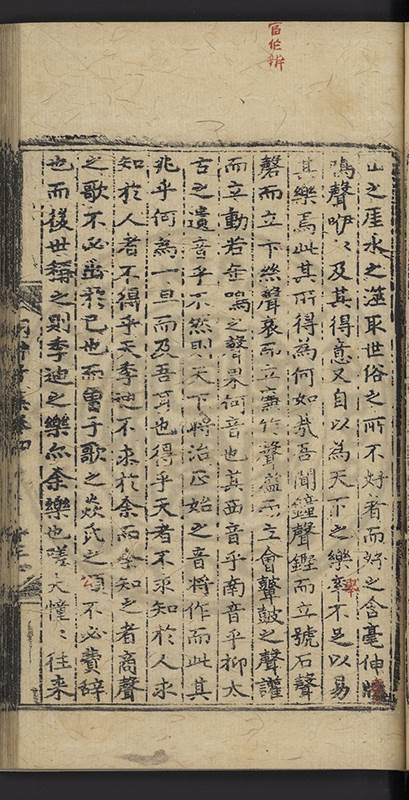 山之厓水之滋取世俗之所不好者而好之含毫伸牘
鳴聲咿〻及其得意又自以為天下之樂率不足以易
其樂焉此其所得為何如哉吾聞鐘聲鏗而立號石聲
磬而立下絲聲哀而立廉竹聲濫而立會鼙鼓之聲讙
而立動若缶鳴之聲果何音也其西音乎南音乎抑太
古之遺音乎不然則天下將治正始之音將作而此其
兆乎何為一旦而及吾耳也得乎天者不求知於人求
知於人者不得乎天李迪不求於余而余知之者商聲
之歌不必出於己也而曾子歌之焱氏之頌不必費辭
也而後世稱之則李迪之樂亦余樂也嗟夫憧〻往來